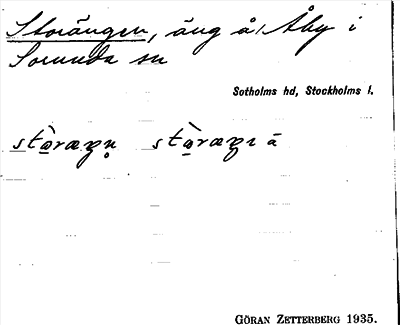 Storängen, äng å Åby i
Sorunda sn
Sotholms hd, Stockholms l.
GÖRAN ZETTERBERG 1935.